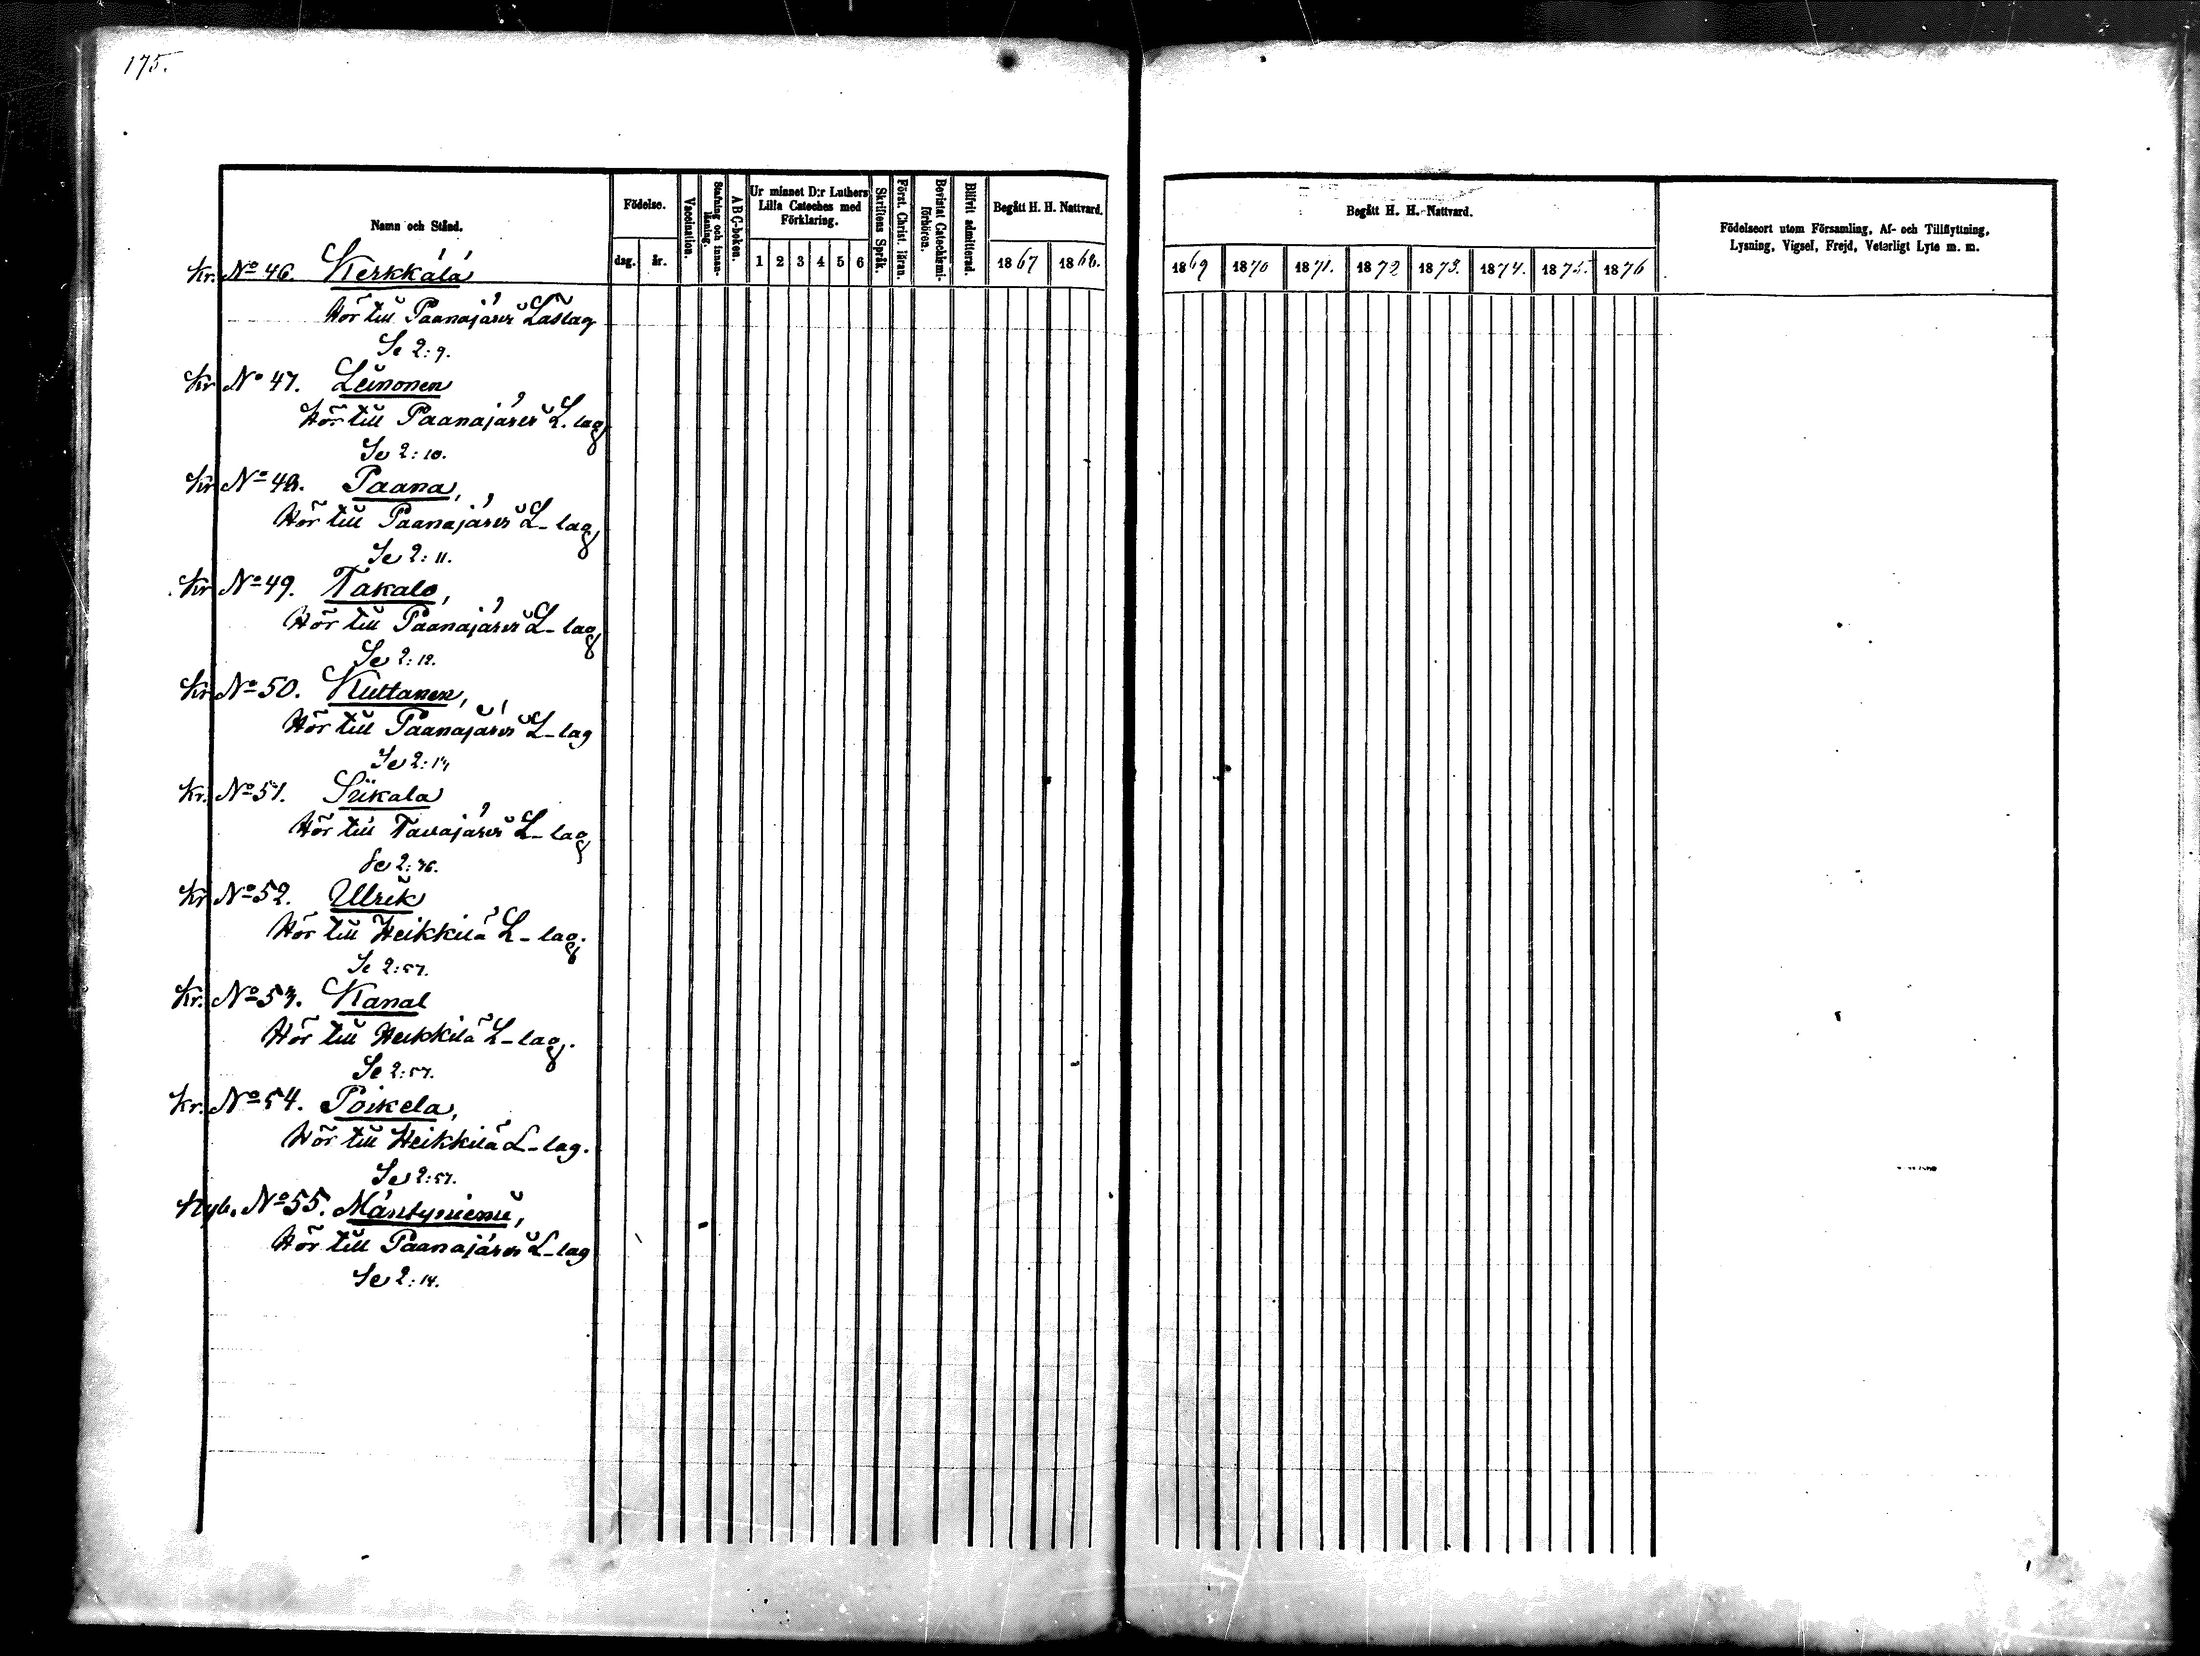 175.
Namn och Stånd.
Födelse.
dag. år.
Vaccination.
Stafning och innan-
läsning.
A B C-boken.
Ur minnet D:r Luthers
Lilla Cateches med
Förklaring.
1 2 3 4 5 6
Skriftens Språk.
Först. Christ. läran.
Bevistat Catechismi-
förhören.
Blifvit admitterad.
Begått H. H. Nattvard.
1867 1868.
Begått H. H. Nattvard.
1869 1870 1871. 1872 1873. 1874. 1875. 1876
Födelseort utom Församling, Af- och Tillflyttning,
Lysning, Vigsel, Frejd, Veterligt Lyte m. m.
Kr. No 46. Kerkkälä
Hör till Paanajärvi Läslag
Se 2:9.
Kr No 47. Leinonen
Hör till Paanajärvi L. lag
Se 2:10.
Kr No 48. Paana,
Hör till Paanajärvi L-lag
Se 2:11.
Kr No 49. Takalo,
Hör till Paanajärvi L-lag
Se 2:12.
Kr No 50. Kiittanen,
Hör till Paanajärvi L-lag
Se 2:13
Kr. No 51. Siikala
Hör till Tavajärvi L-lag
Se 2:36.
Kr No 52. Ulrik
Hör till Heikkilä L-lag.
Se 2:57.
Kr. No 53. Kanal
Hör till Heikkilä L-lag.
Se 2:57.
Kr. No 54. Poikela,
Hör till Heikkilä L-lag.
Se 2:57.
Nyb. No 55. Mäntyniemi,
Hör till Paanajärvi L-lag
Se 2:14.